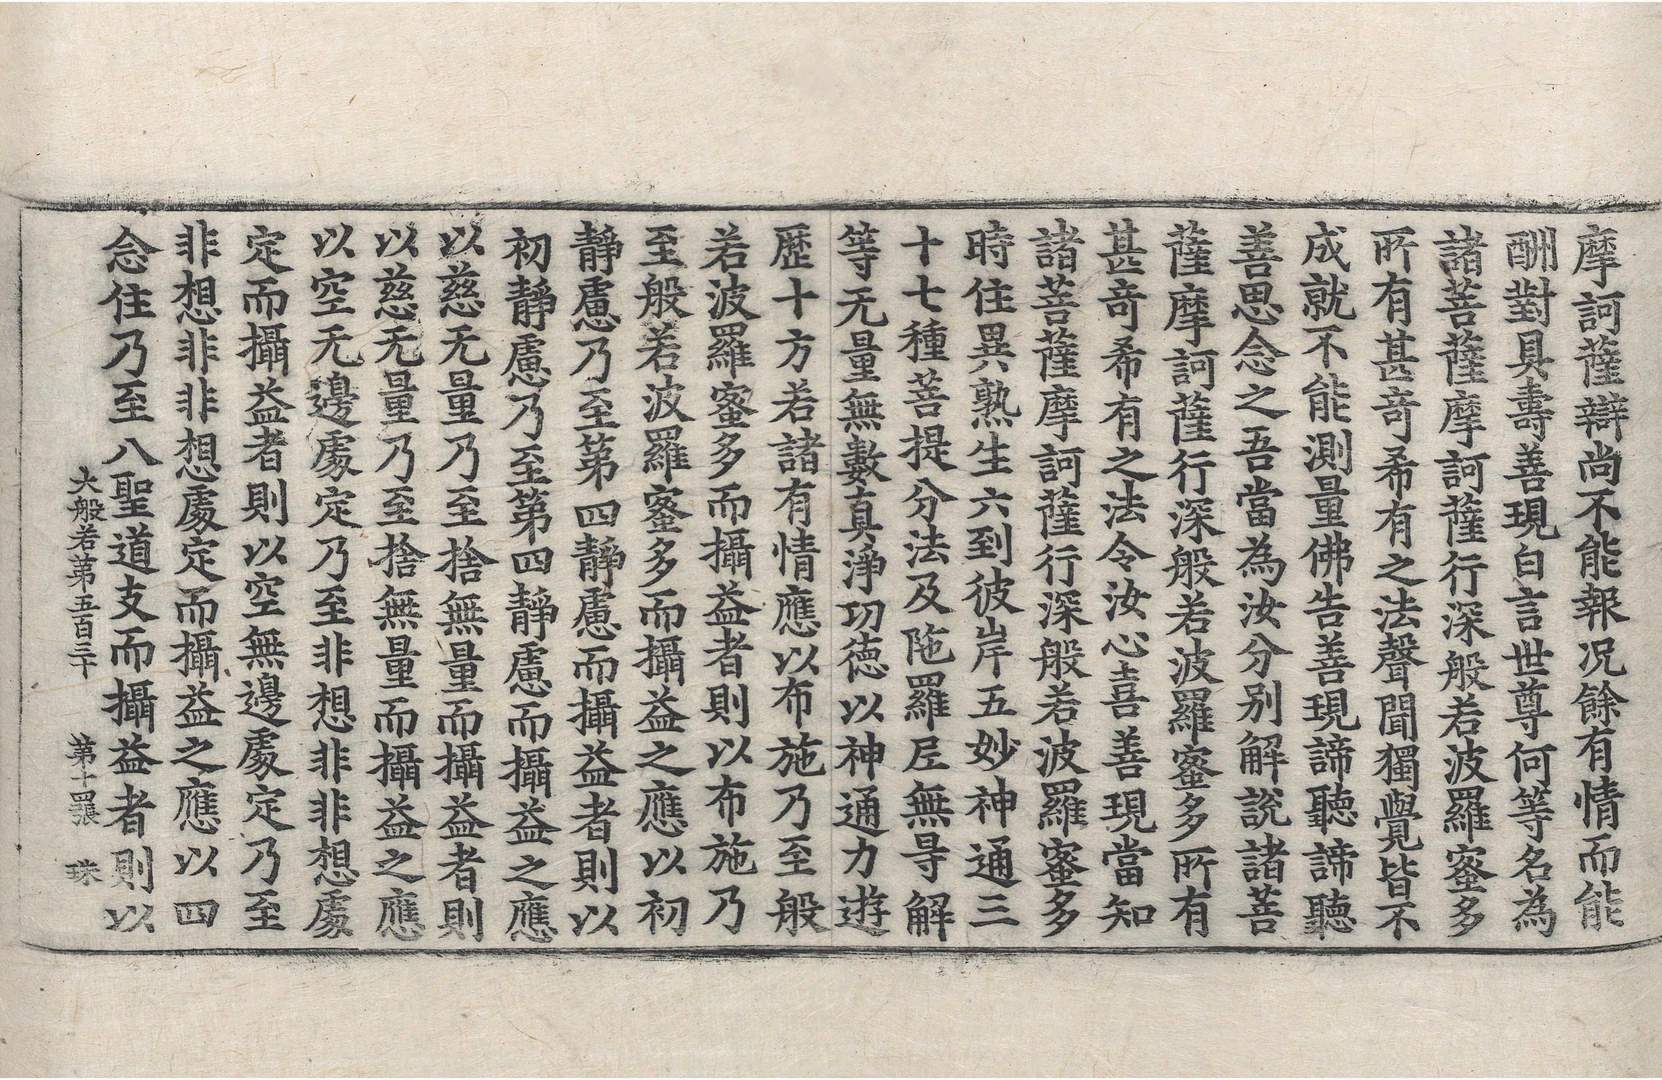 摩訶薩辯尚不能報况餘有情而能
酬對具壽善現白言世尊何等名為
諸菩薩摩訶薩行深般若波羅蜜多
所有甚竒希有之法聲聞獨覺皆不
成就不能測量佛告善現諦聽諦聽
善思念之吾當為汝分别解說諸菩
薩摩訶薩行深般若波羅蜜多所有
甚竒希有之法令汝心喜善現當知
諸菩薩摩訶薩行深般若波羅蜜多
時住異熟生六到彼岸五妙神通三
十七種菩提分法及陁羅尼無㝵解
等无量無數真淨功德以神通力遊
歷十方若諸有情應以布施乃至般
若波羅蜜多而攝益者則以布施乃
至般若波羅蜜多而攝益之應以初
靜慮乃至第四靜慮而攝益者則以
初靜慮乃至第四靜慮而攝益之應
以慈无量乃至捨無量而攝益者則
以慈无量乃至捨無量而攝益之應
以空无邊處定乃至非想非非想處
定而攝益者則以空無邊處定乃至
非想非非想處定而攝益之應以四
念住乃至八聖道支而攝益者則以
大般若第五百三十 第十四張 珠